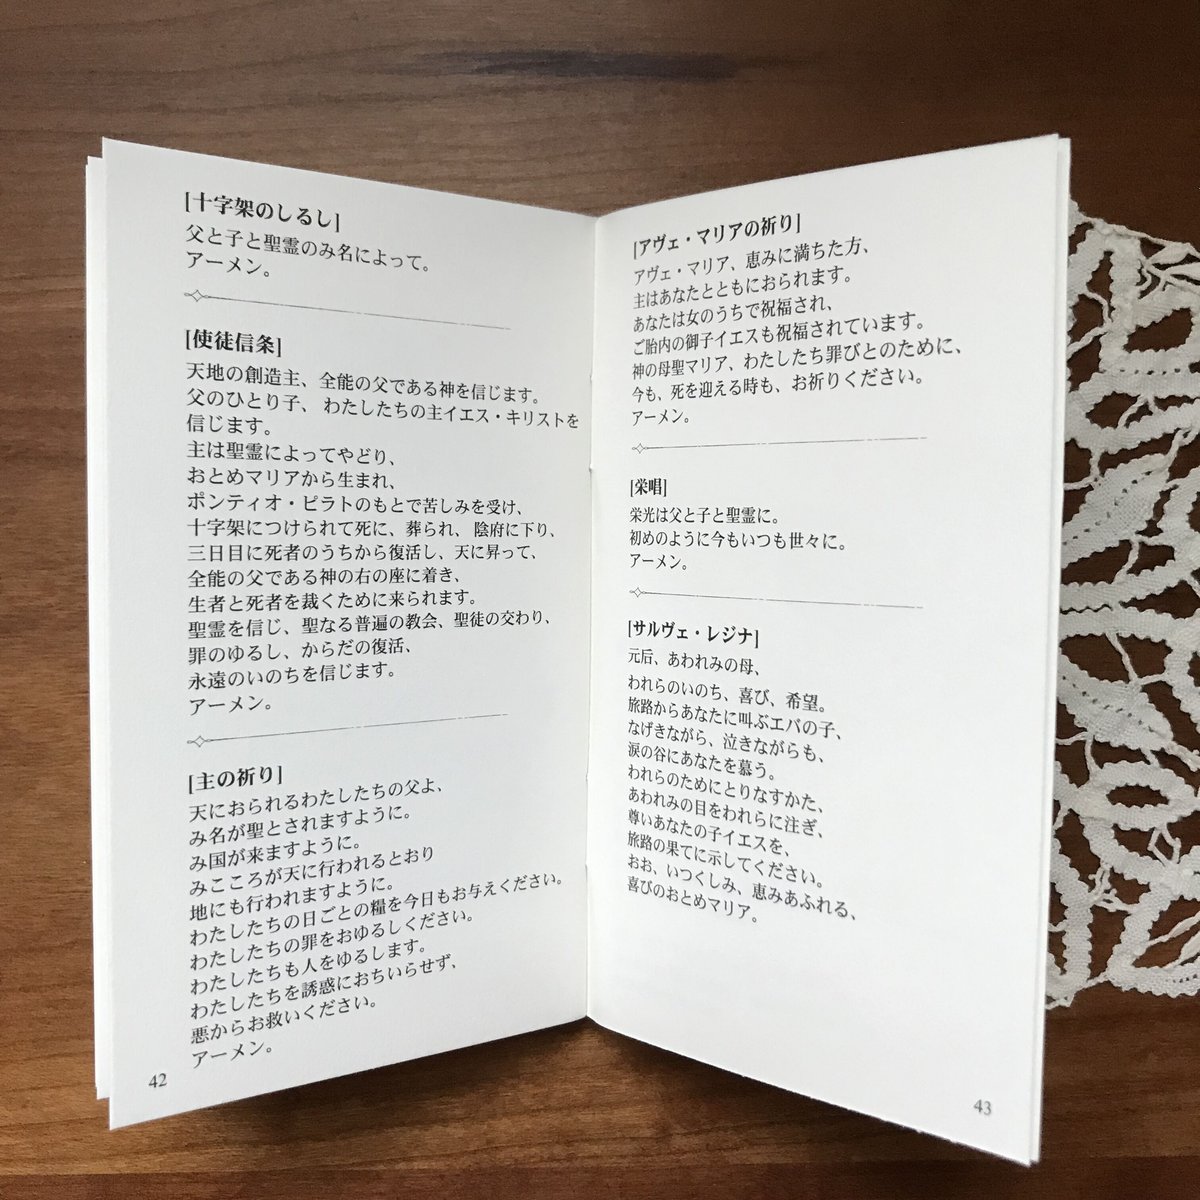 [十字架のしるし]
父と子と聖霊のみ名によって。
アーメン。
[使徒信条]
天地の創造主、全能の父である神を信じます。
父のひとり子、わたしたちの主イエス・キリストを
信じます。
主は聖霊によってやどり、
おとめマリアから生まれ、
ポンティオ・ピラトのもとで苦しみを受け、
十字架につけられて死に、葬られ、陰府に下り、
三日目に死者のうちから復活し、天に昇って、
全能の父である神の右の座に着き、
生者と死者を裁くために来られます。
聖霊を信じ、聖なる普遍の教会、聖徒の交わり、
罪のゆるし、からだの復活、
永遠のいのちを信じます。
アーメン。
[主の祈り]
天におられるわたしたちの父よ、
み名が聖とされますように。
み国が来ますように。
みこころが天に行われるとおり
地にも行われますように。
わたしたちの日ごとの糧を今日もお与えください。
わたしたちの罪をおゆるしください。
わたしたちも人をゆるします。
わたしたちを誘惑におちいらせず、
悪からお救いください。
アーメン。
42
[アヴェ・マリアの祈り]
アヴェ・マリア、恵みに満ちた方、
主はあなたとともにおられます。
あなたは女のうちで祝福され、
ご胎内の御子イエスも祝福されています。
神の母聖マリア、わたしたち罪びとのために、
今も、死を迎える時も、お祈りください。
アーメン。
[栄唱]
栄光は父と子と聖霊に。
初めのように今もいつも世々に。
アーメン。
[サルヴェ・レジナ]
元后、あわれみの母、
われらのいのち、喜び、希望。
旅路からあなたに叫ぶエバの子、
なげきながら、泣きながらも、
涙の谷にあなたを慕う。
われらのためにとりなすかた、
あわれみの目をわれらに注ぎ、
尊いあなたの子イエスを、
旅路の果てに示してください。
おお、いつくしみ、恵みあふれる、
喜びのおとめマリア。
43